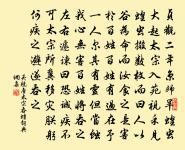 貞觀二年京師旱蝗蟲
大起太宗入苑視禾見
蝗蟲掇數枚而曰人以
谷為命而汝食之是害
于百姓百姓有過在予
一人爾其有靈但當蝕
我心無害百姓將吞之
左右遽諫曰恐成疾不
可太宗所冀移災朕躬
何疾之避遂吞之